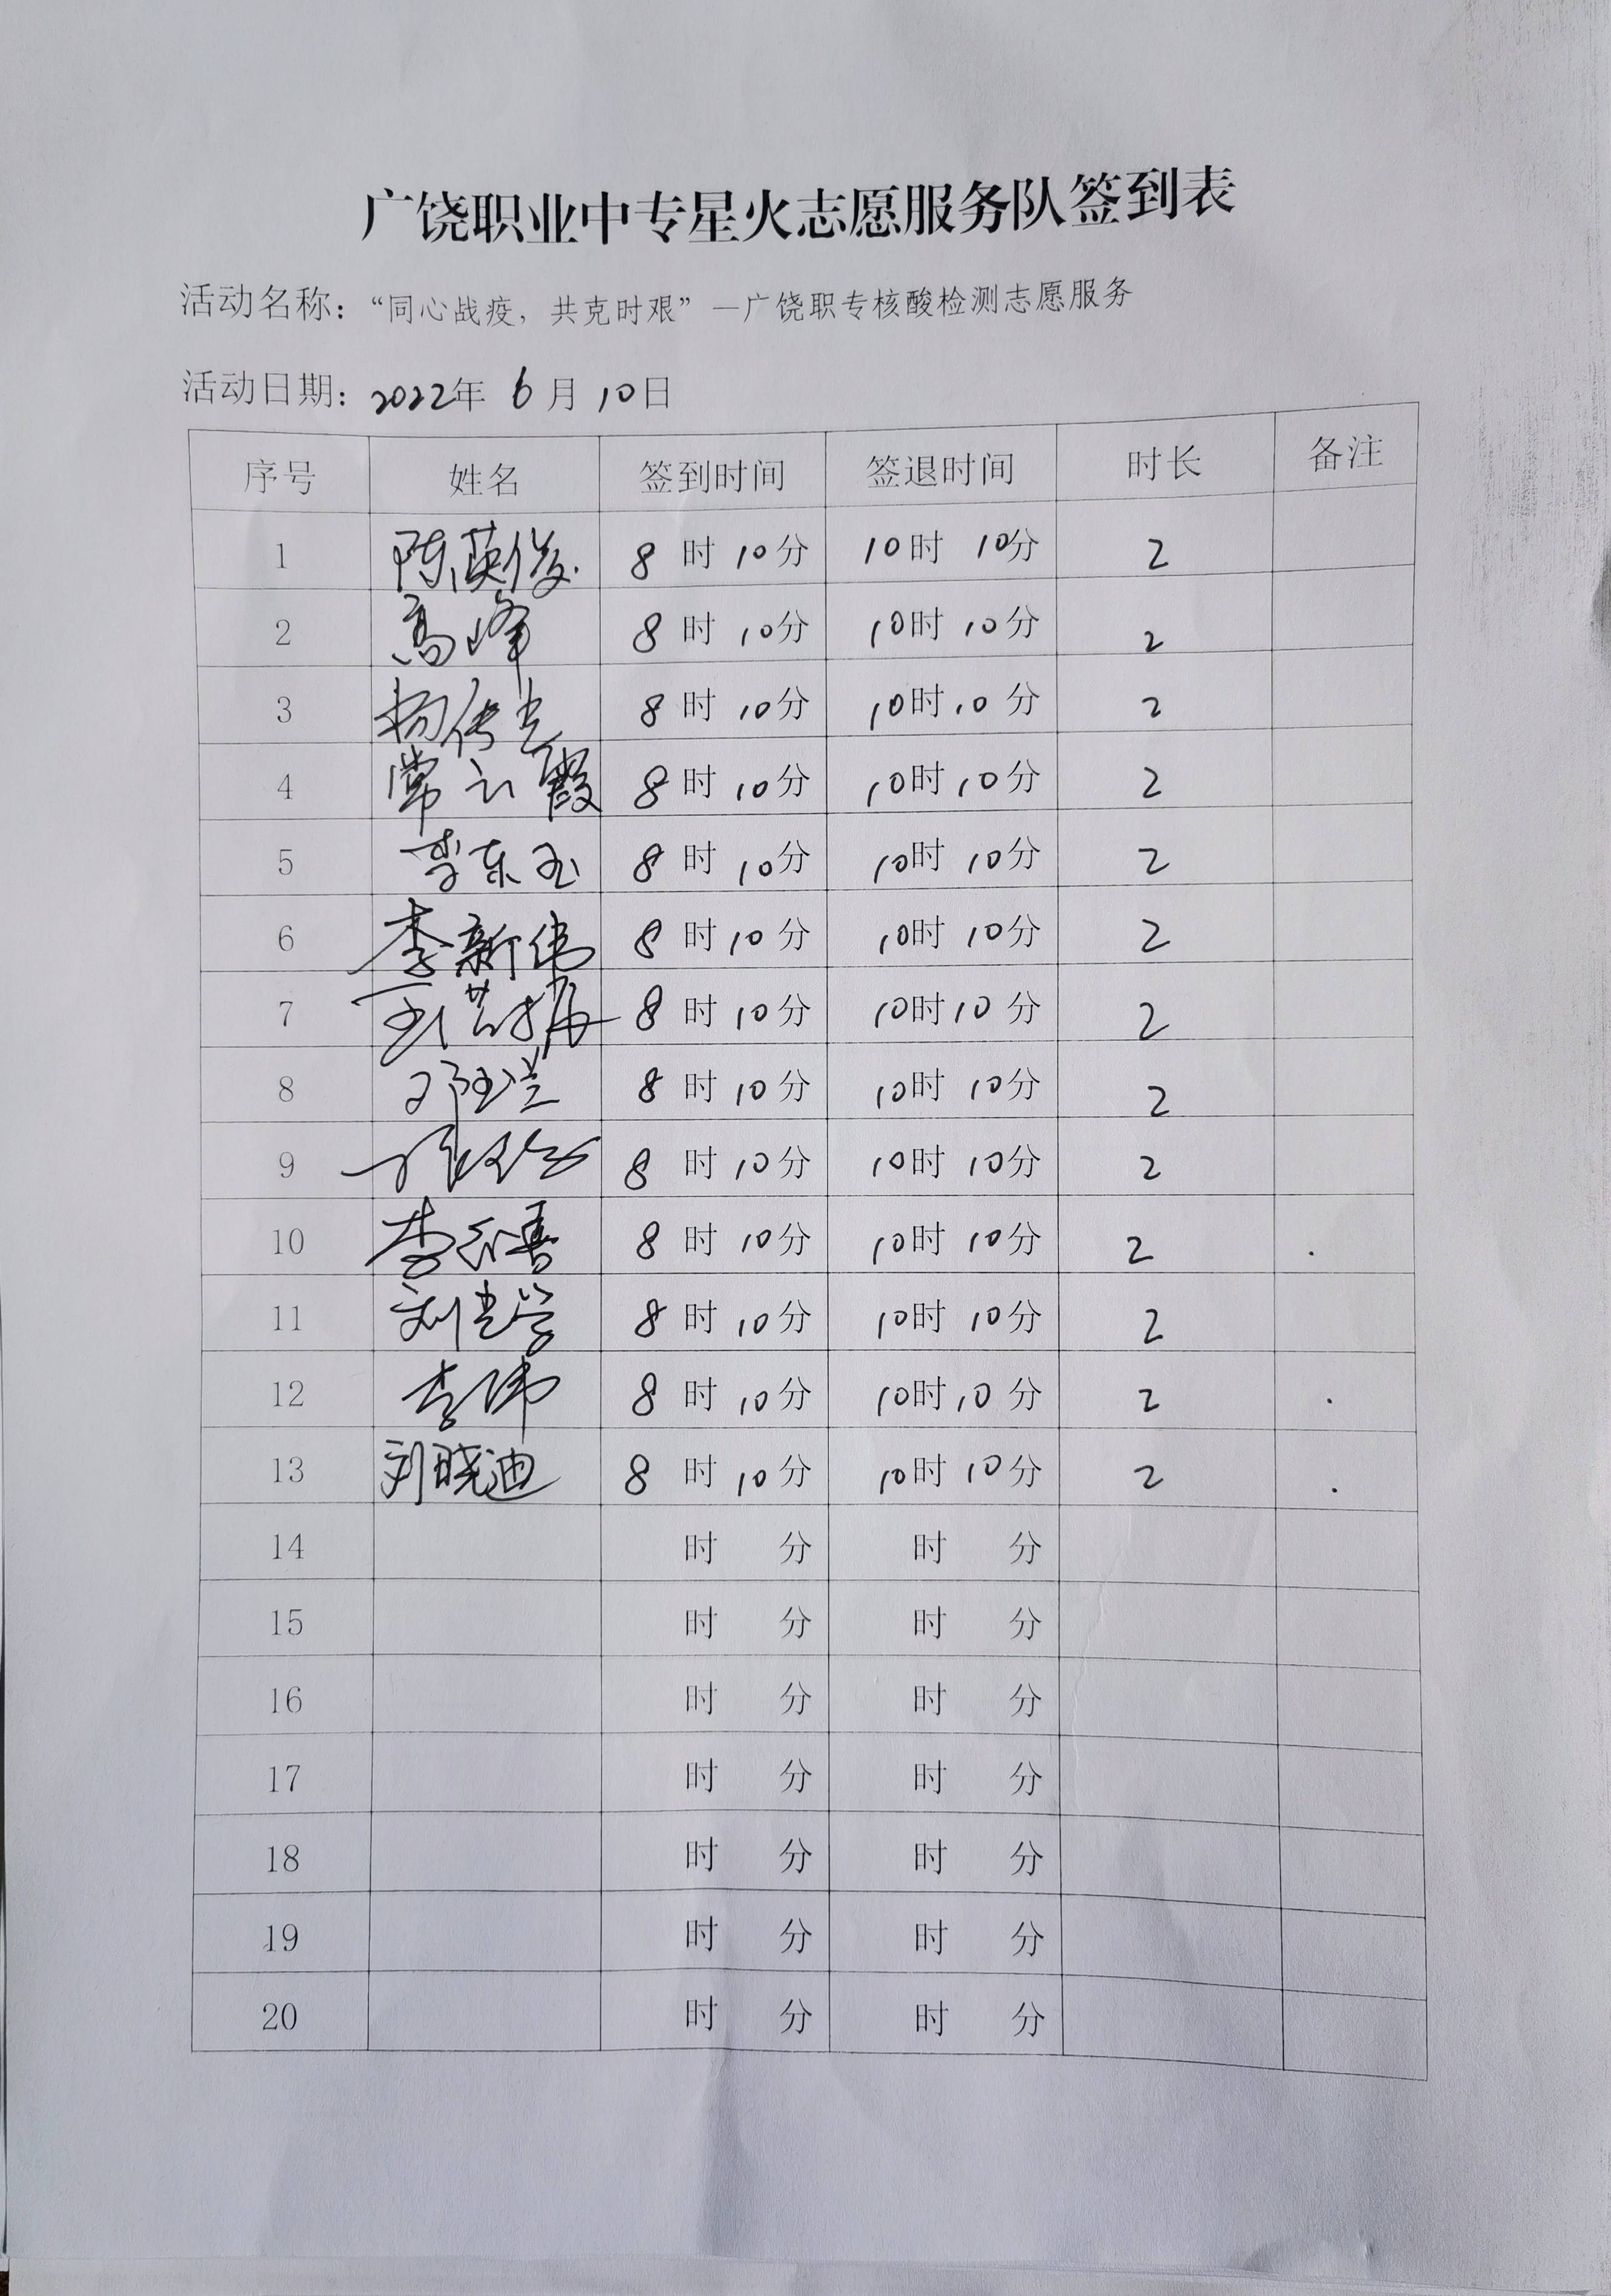 广饶职业中专星火志愿服务队签到表
活动名称：“同心战疫，共克时艰”—广饶职专核酸检测志愿服务
活动日期：2022年 6月 10日
序号 姓名 签到时间 签退时间 时长 备注
1 陈英俊 8时10分 10时10分 2
2 高峰 8时10分 10时10分 2
3 杨传光 8时10分 10时10分 2
4 常云霞 8时10分 10时10分 2
5 李东玉 8时10分 10时10分 2
6 李新伟 8时10分 10时10分 2
7 8时10分 10时10分 2
8 8时10分 10时10分 2
9 8时10分 10时10分 2
10 8时10分 10时10分 2
11 刘光学 8时10分 10时10分 2
12 李伟 8时10分 10时10分 2
13 刘晓迪 8时10分 10时10分 2
14 时 分 时 分
15 时 分 时 分
16 时 分 时 分
17 时 分 时 分
18 时 分 时 分
19 时 分 时 分
20 时 分 时 分